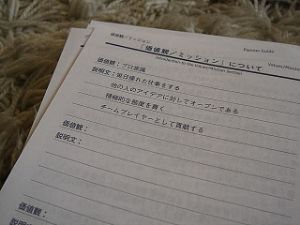 価値観／ミッション
Planner Guide
「価値観／ミッション」について
Introduction to the Values/Mission Section
Values/Mission
価値観：プロ意識
説明文：毎日優れた仕事をする
他の人のアイデアに対してオープンである
積極的な態度を貫く
チームプレイヤーとして貢献する
価値観：
説明文：
価値観：
説明文：